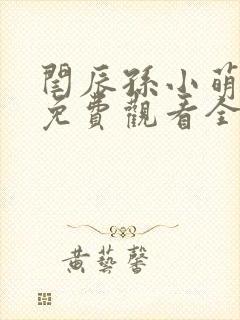 閏辰孫小萌
免費觀看全
黃藝馨